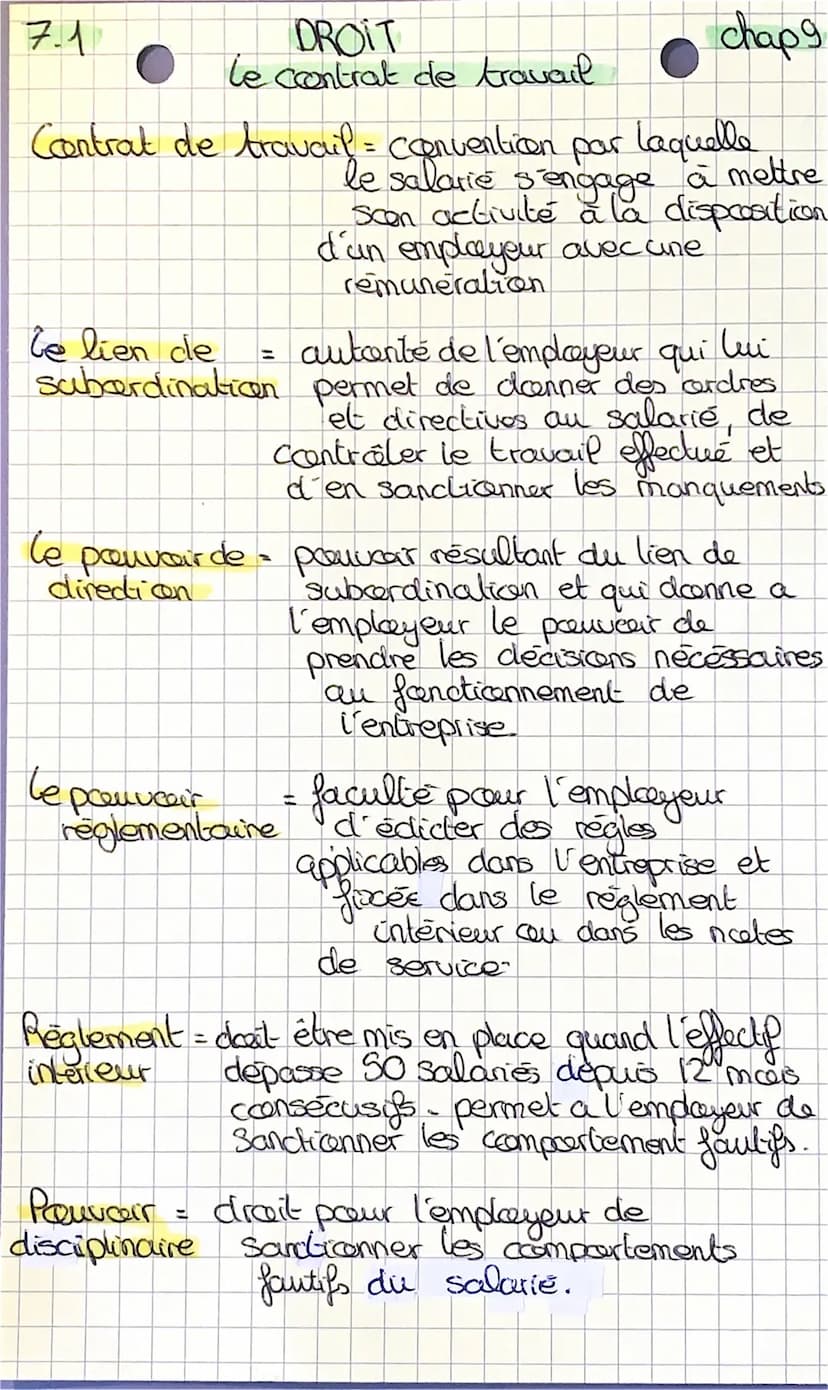 7.1 DROIT chap 9
Le contrat de travail
Contrat de travail = convention par laquelle
le salarié s'engage à mettre
son activité à la disposition
d'un employeur avec une
rémunération
Le lien de = autorité de l'employeur qui lui
subordination permet de donner des ordres
et directives au salarié, de
contrôler le travail effectué et
d'en sanctionner les manquements
Le pouvoir de = pouvoir résultant du lien de
direction subordination et qui donne a
l'employeur le pouvoir de
prendre les décisions nécéssaires
au fonctionnement de
l'entreprise.
Le pouvoir = faculté pour l'employeur
réglementaire d'édicter des régles
applicables dans l'entreprise et
fixée dans le réglement
intérieur ou dans les notes
de service.
Réglement = doit être mis en place quand l'effectif
intérieur dépasse 50 salariés depuis 12 mois
consécusifs. permet a l'employeur de
sanctionner les comportement fautifs.
Pouvoir = droit pour l'employeur de
disciplinaire sanctionner les comportements
fautifs du salarié.